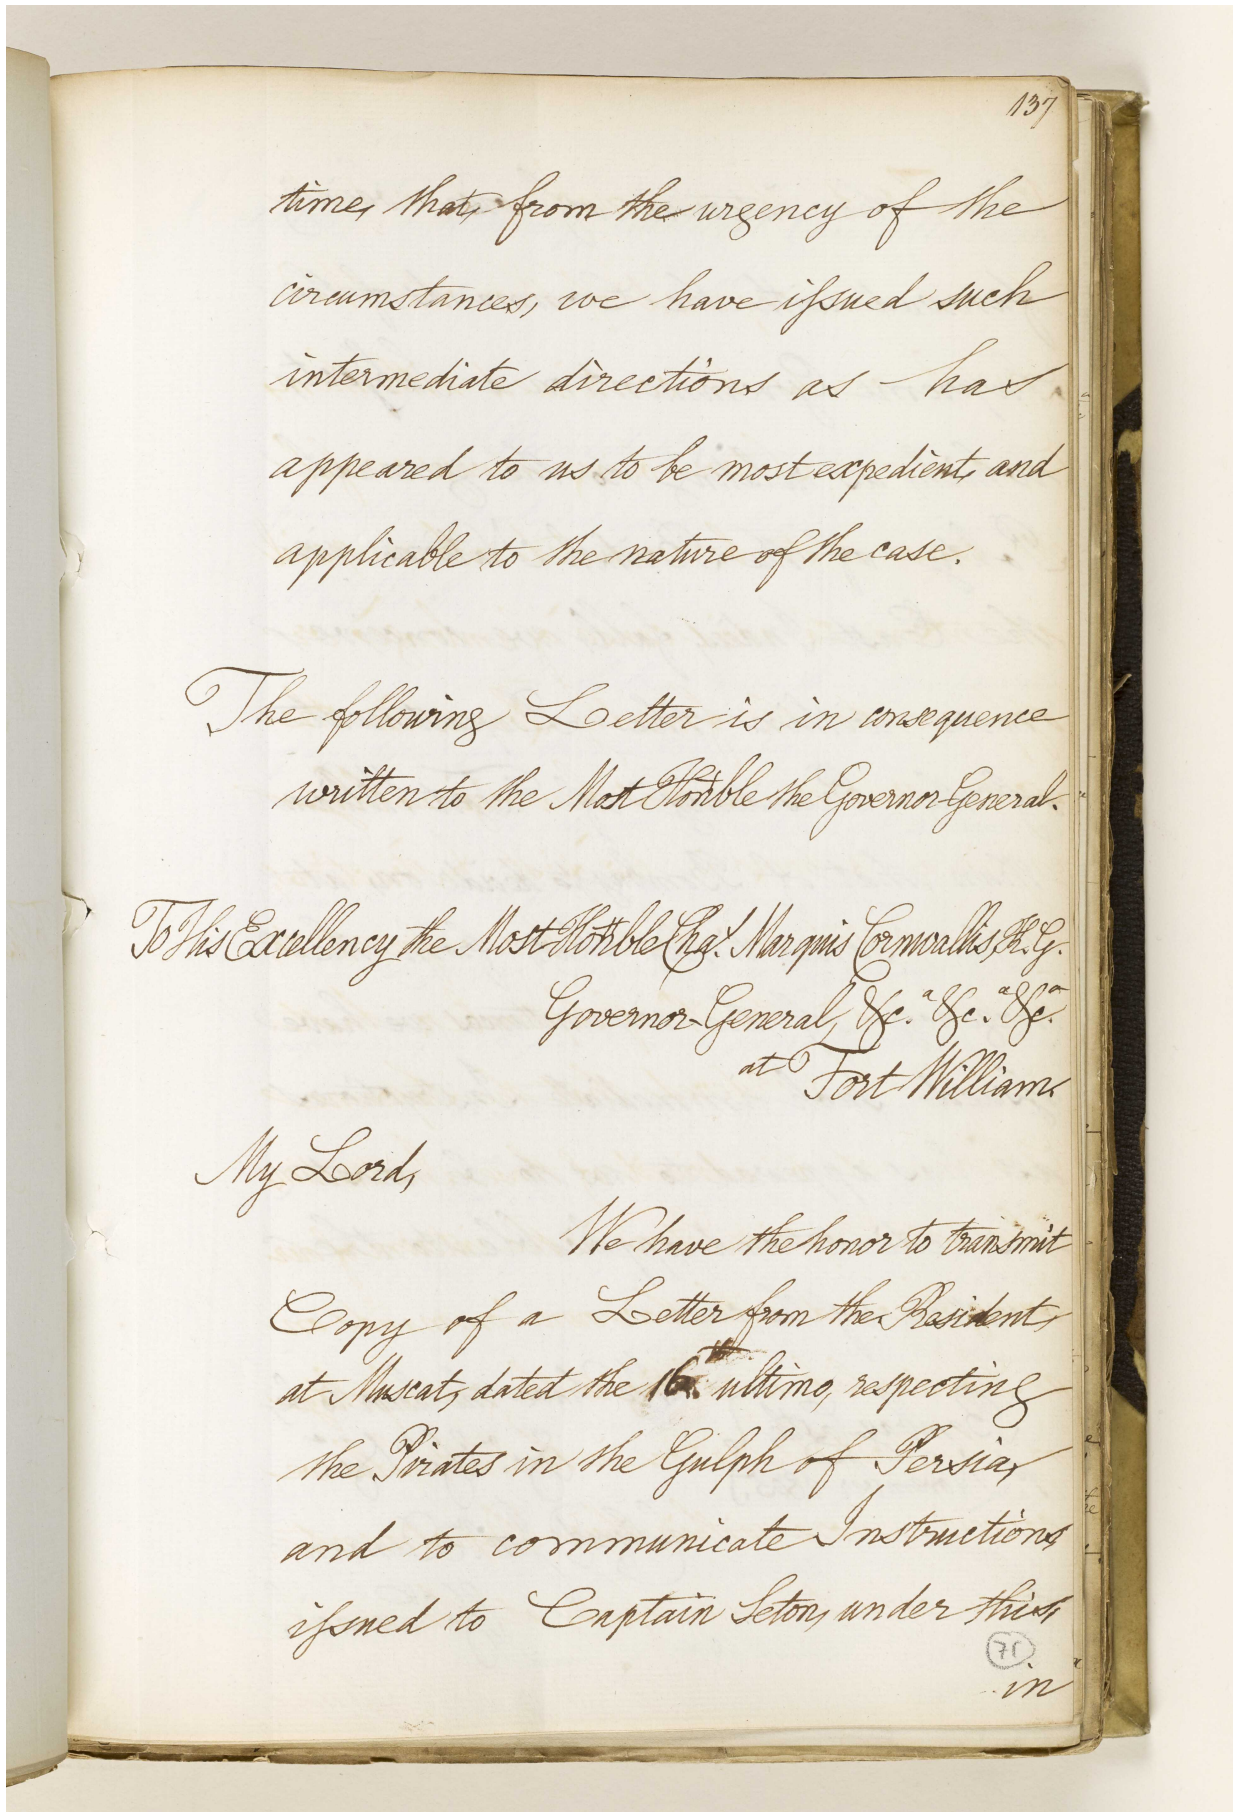 137
time, that, from the urgency of the
circumstances, we have issued such
intermediate directions as has
appeared to us to be most expedient, and
applicable to the nature of the case.
The following Letter is in consequence
written to the Most Hon'ble the Governor General.
To His Excellency the Most Hon'ble Cha.s Marquis Cornwallis, K.G.
Governor-General, &c.a &c.a &c.a
at Fort William.
My Lord,
We have the honor to transmit
Copy of a Letter from the Resident,
at Muscat, dated the 16th ultimo, respecting
the Pirates in the Gulph of Persia,
and to communicate Instructions
issued to Captain Seton, under this,
71
in